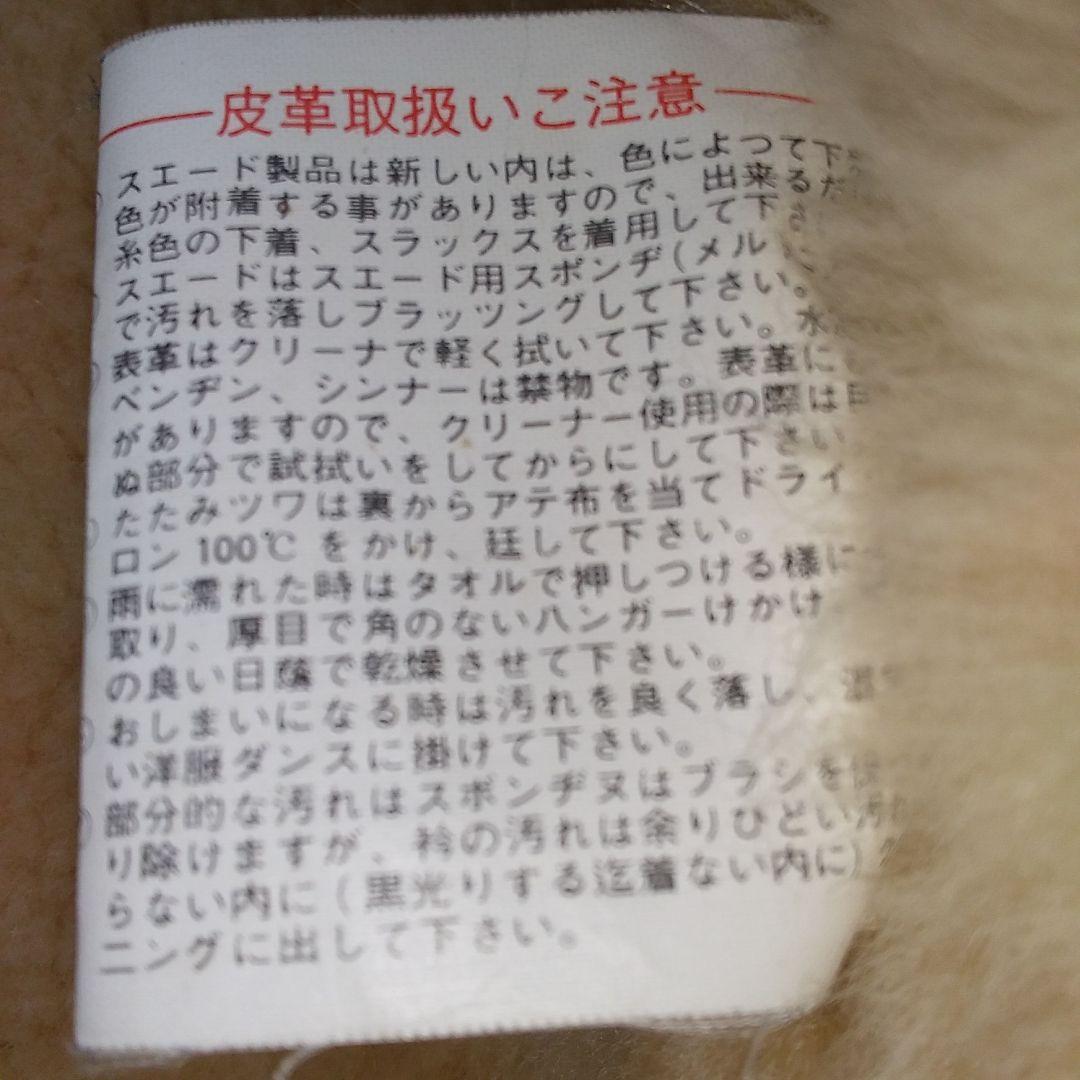 皮革取扱いこ注意
スエード製品は新しい内は、色によって下
色が附着する事がありますので、出来るだ
糸色の下着、スラックスを着用して下さ
スエードはスエード用スポンヂ(メル
で汚れを落しブラッツングして下さい。
表革はクリーナで軽く拭いて下さい。水
ベンヂン、シンナーは禁物です。表革に
がありますので、クリーナー使用の際は目
ぬ部分で試拭いをしてからにして下さい
たたみツワは裏からアテ布を当てドライ
ロン100℃をかけ、廷して下さい。
雨に濡れた時はタオルで押しつける様に
取り、厚目で角のないハンガーけかけ
の良い日蔭で乾燥させて下さい。
おしまいになる時は汚れを良く落し、湿
い洋服ダンスに掛けて下さい。
部分的な汚れはスポンヂヌはブラシを使
り除けますが、衿の汚れは余りひどい汚
らない内に(黒光りする迄着ない内に)
ニングに出して下さい。